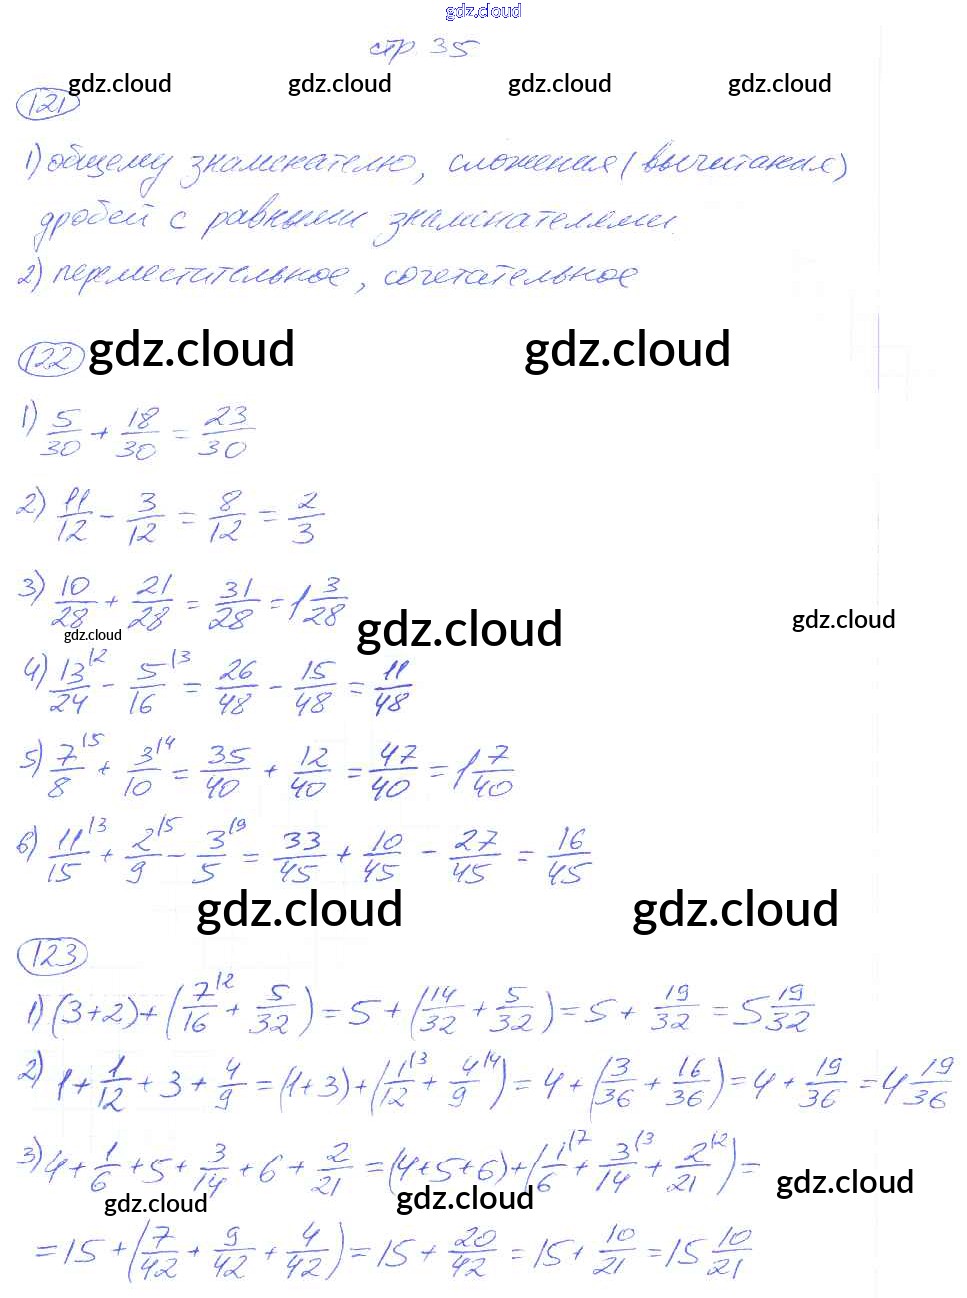 gdz.cloud
стр. 35
gdz.cloud gdz.cloud gdz.cloud gdz.cloud
121
1) общему знаменателю, сложения (вычитания)
дробей с равными знаменателями.
2) переместительное, сочетательное
122 gdz.cloud gdz.cloud
1) 5/30 + 18/30 = 23/30
2) 11/12 - 3/12 = 8/12 = 2/3
3) 10/28 + 21/28 = 31/28 = 1 3/28
gdz.cloud gdz.cloud gdz.cloud
4) 13/24 |2 - 5/16 |3 = 26/48 - 15/48 = 11/48
5) 7/8 |5 + 3/10 |4 = 35/40 + 12/40 = 47/40 = 1 7/40
6) 11/15 |3 + 2/9 |5 - 3/5 |9 = 33/45 + 10/45 - 27/45 = 16/45
gdz.cloud gdz.cloud
123
1) (3+2)+(7/16 |2 + 5/32) = 5 + (14/32 + 5/32) = 5 + 19/32 = 5 19/32
2) 1 + 1/12 + 3 + 4/9 = (1+3)+(1/12 |3 + 4/9 |4) = 4 + (3/36 + 16/36) = 4 + 19/36 = 4 19/36
3) 4 + 1/6 + 5 + 3/14 + 6 + 2/21 = (4+5+6)+(1/6 |7 + 3/14 |3 + 2/21 |2) =
gdz.cloud gdz.cloud gdz.cloud
= 15 + (7/42 + 9/42 + 4/42) = 15 + 20/42 = 15 + 10/21 = 15 10/21